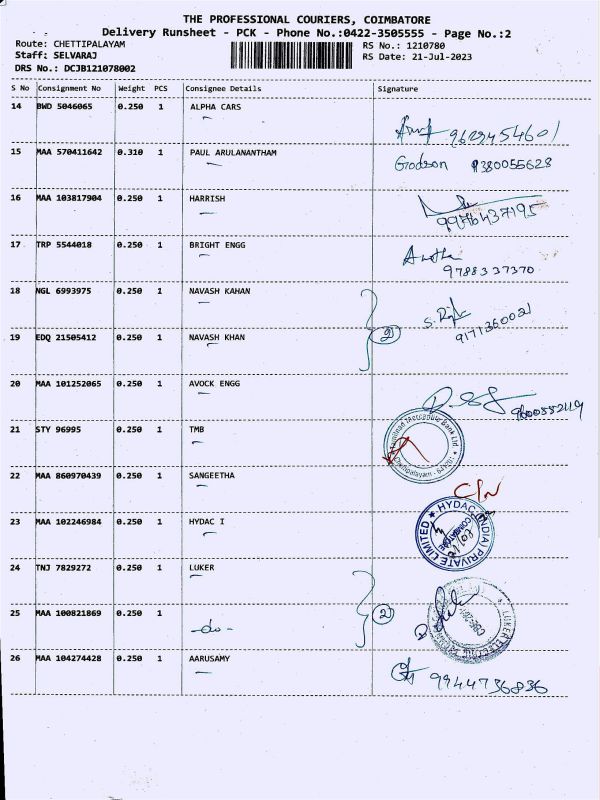 THE PROFESSIONAL COURIERS, COIMBATORE
Delivery Runsheet - PCK - Phone No.:0422-3505555 - Page No.:2
Route: CHETTIPALAYAM RS No.: 1210780
Staff: SELVARAJ RS Date: 21-Jul-2023
DRS No.: DCJB121078002
S No Consignment No Weight PCS Consignee Details Signature
14 BWD 5046065 0.250 1 ALPHA CARS
9629454601
15 MAA 570411642 0.310 1 PAUL ARULANANTHAM
Godson 9380055628
16 MAA 103817904 0.250 1 HARRISH
9976437195
17 TRP 5544018 0.250 1 BRIGHT ENGG
9788337370
18 NGL 6993975 0.250 1 NAVASH KAHAN
2
19 EDQ 21505412 0.250 1 NAVASH KHAN
20 MAA 101252065 0.250 1 AVOCK ENGG
9600552119
21 STY 96995 0.250 1 TMB
Tamilnad Mercantile Bank Ltd.
22 MAA 860970439 0.250 1 SANGEETHA
23 MAA 102246984 0.250 1 HYDAC I
HYDAC (INDIA) PRIVATE LIMITED
COIMBATORE
24 TNJ 7829272 0.250 1 LUKER
2
25 MAA 100821869 0.250 1 -do-
LUKER ELECTRIC
26 MAA 104274428 0.250 1 AARUSAMY
9944736836